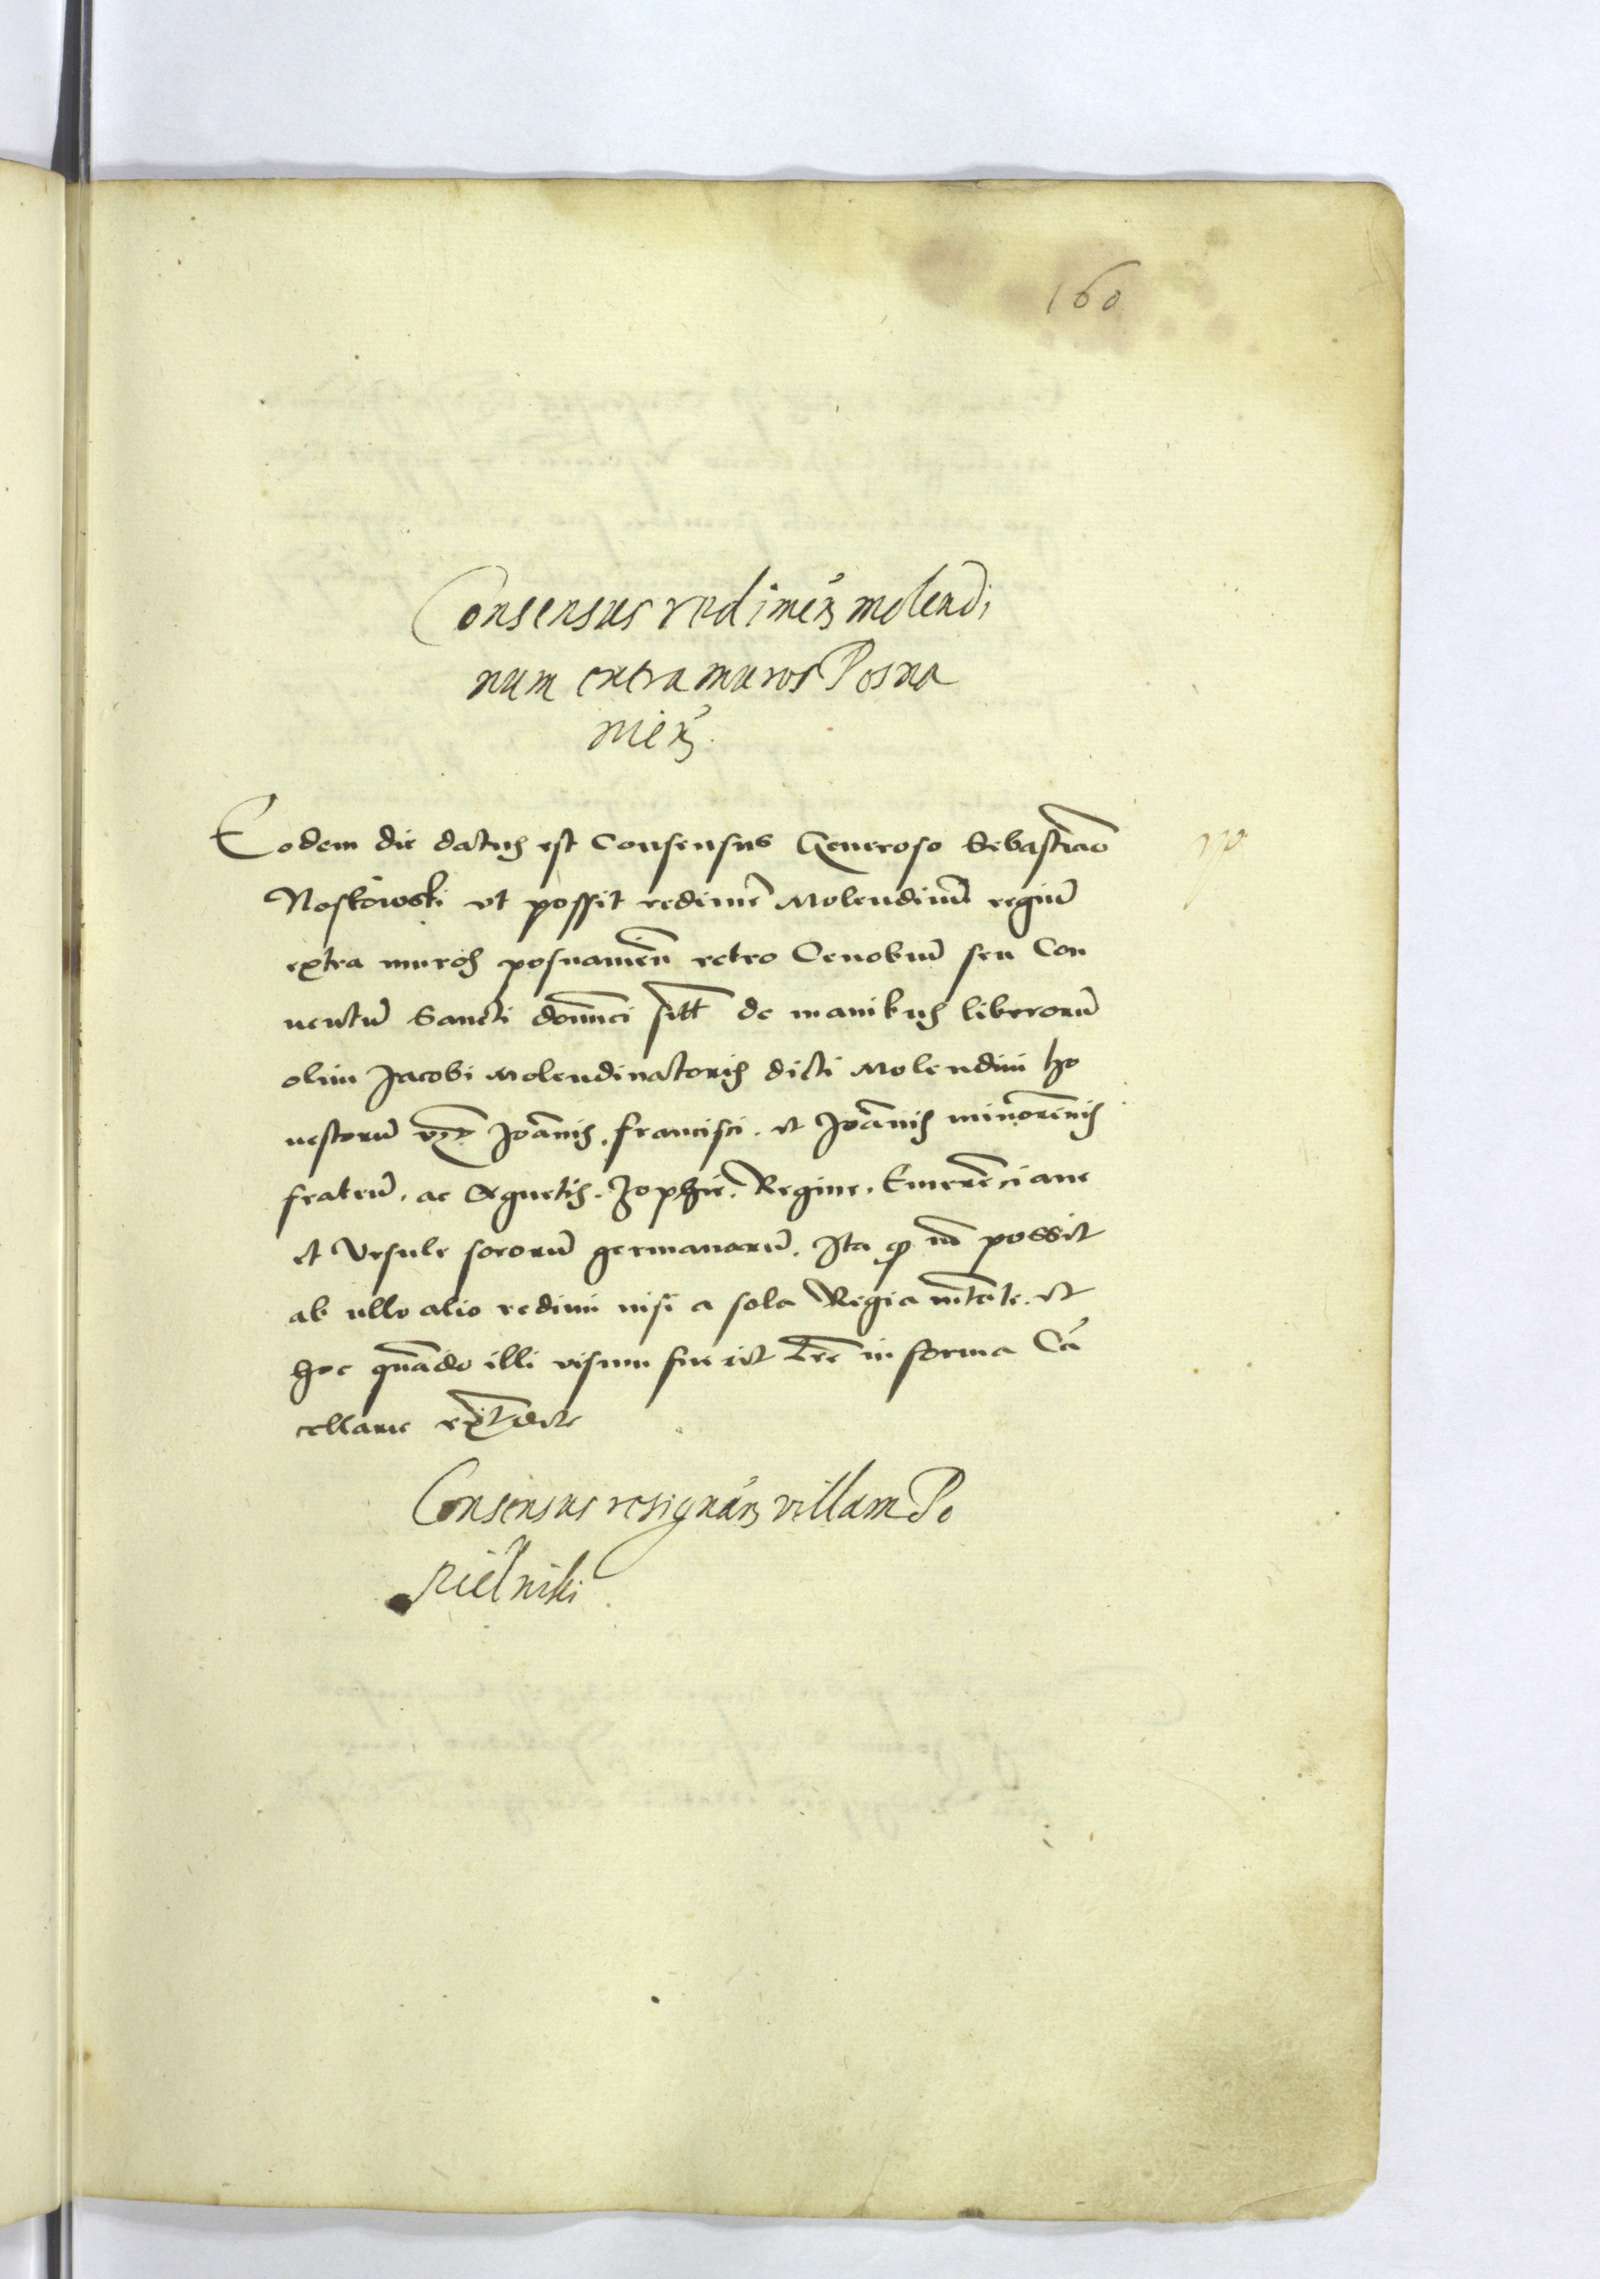 160
Consensus redimeñ molendi
num extra muros Posna
nieñ.
Eodem die datus est Consensus Generoso Sebastiano
Noskowski vt possit redimere Molendinū regiū
extra muros posnanien̄ retro Cenobiū seu Con
uentū Sancti dominici sitū de manibus liberorū
olim Jacobi Molendinatoris dicti Molendini ho
nestorū vz Joānis, francisci. et Joānis minorēnis
fratrū, ac Agnetis. Zophie. Regine. Emerēnciane
et Vrsule sororū germanarū. Ita q nō possit
ab ullo alio redimi nisi a sola Regia mtate. et
hoc quādo illi visum fuerit lrē in forma Cā
cellarie
Consensus resignañ villam Po
rielniki